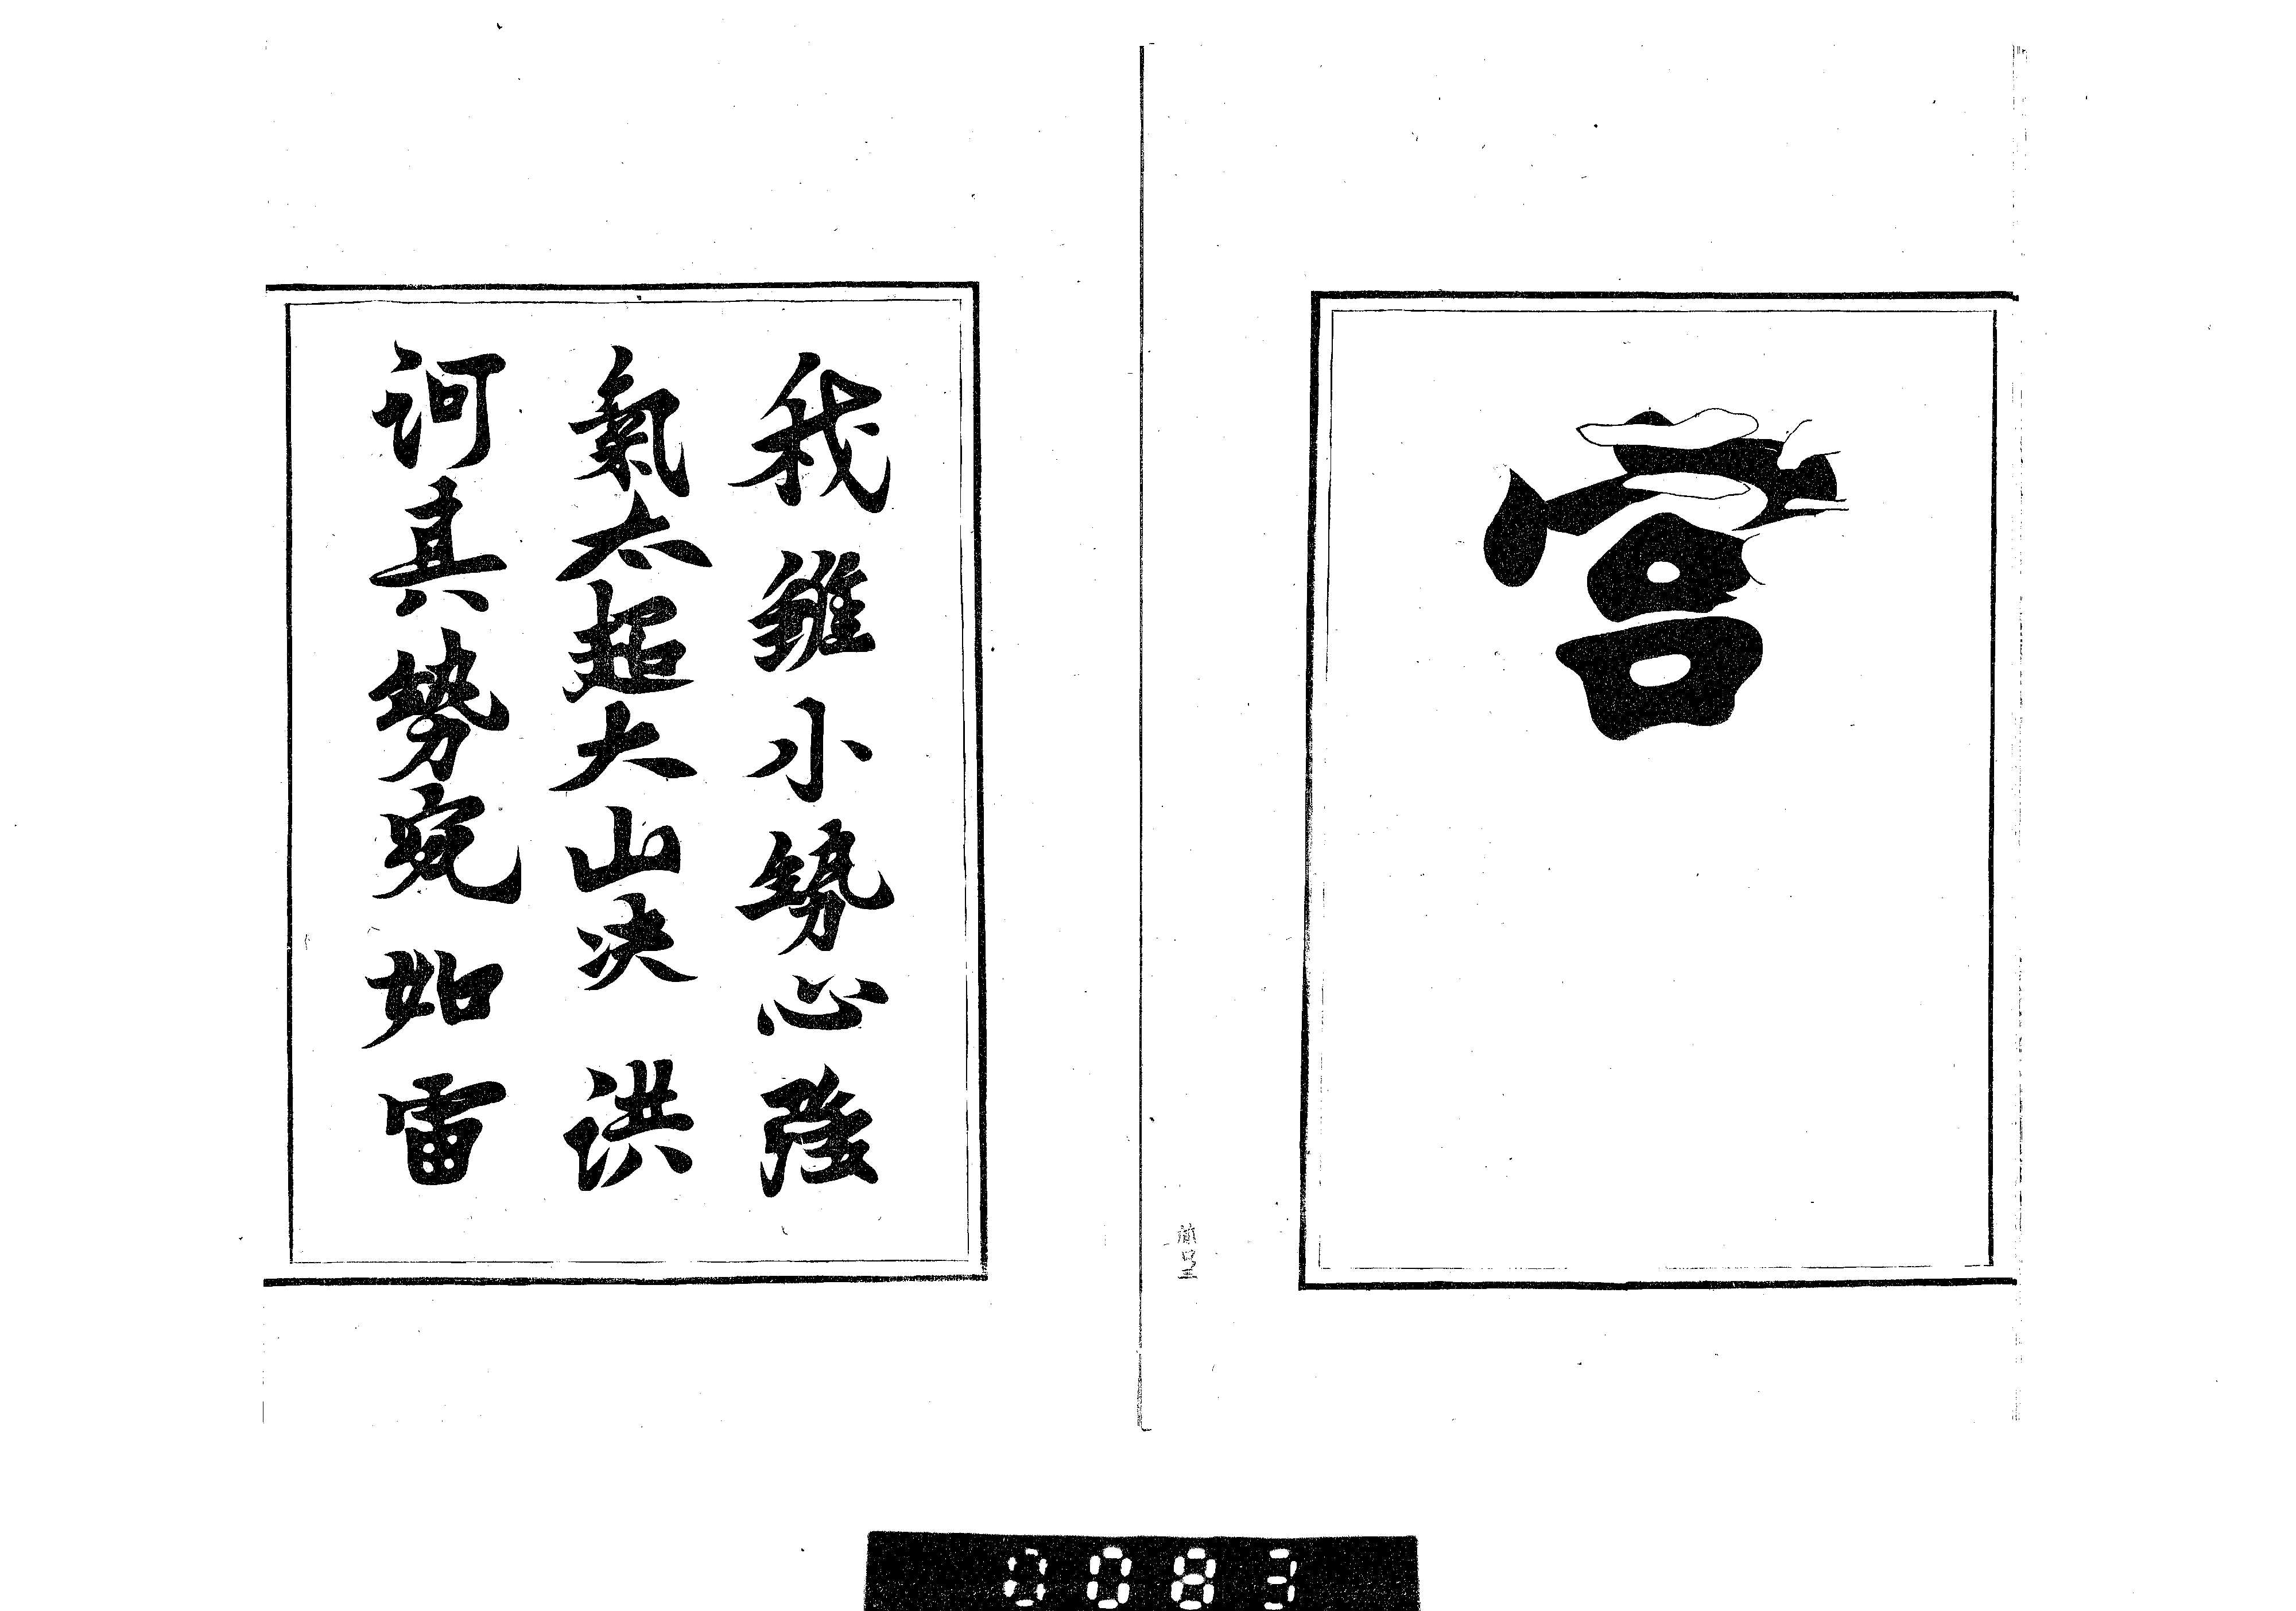 宮
我雖小勢心強
氣太超大山决洪
訶真勢宛如雷
0083